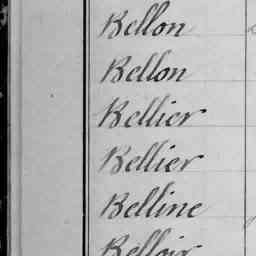 Bellon
Bellon
Bellier
Bellier
Belline
Belloir